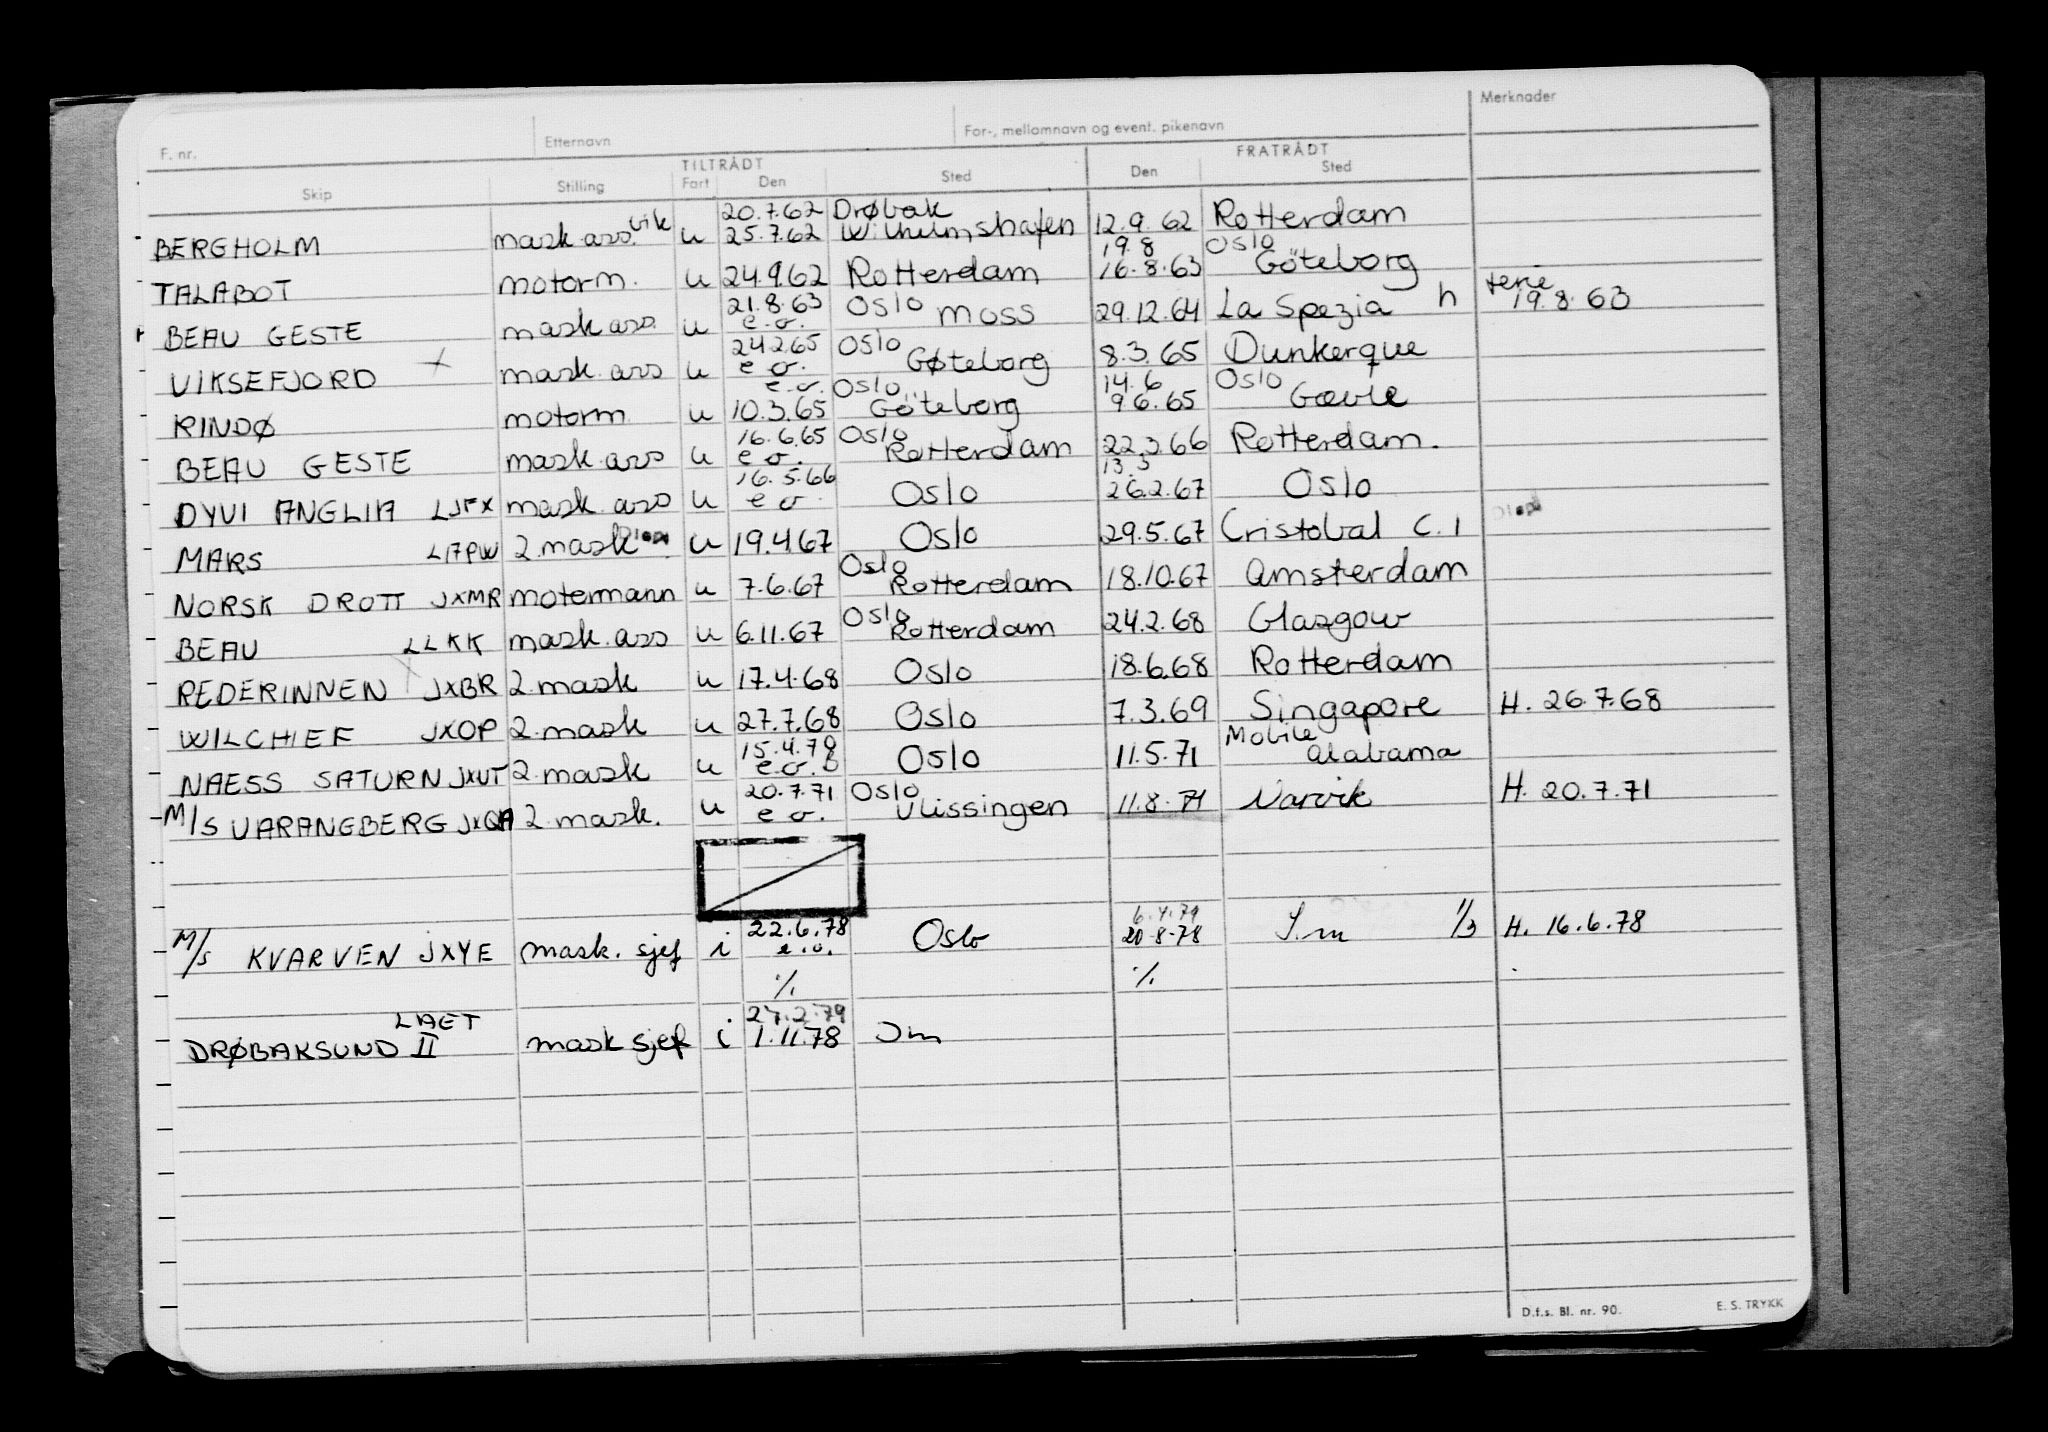 F. nr. Etternavn For-, mellomnavn og event. pikenavn Merknader
TILTRÅDT FRATRÅDT
Skip Stilling Fart Den Sted Den Sted
20.7.62 Drøbak
BERGHOLM mask.ass. vik u 25.7.62 Wilhelmshafen 12.9.62 Rotterdam
19.8 Oslo
TALABOT motorm. u 24.9.62 Rotterdam 16.8.63 Göteborg
21.8.63 Oslo ferie
BEAU GESTE mask ass. u e.o. Moss 29.12.64 La Spezia h 19.8.63
24.2.65 Oslo
VIKSEFJORD mask ass u e o. Gøteborg 8.3.65 Dunkerque
e.o. Oslo 14.6 Oslo
RINDØ motorm u 10.3.65 Göteborg 9.6.65 Gævle
16.6.65 Oslo
BEAU GESTE mask.ass u e o. Rotterdam 22.3.66 Rotterdam.
16.5.66 13.3
DYVI ANGLIA LJFX mask ass u e o. Oslo 26.2.67 Oslo
MARS 2.mask u 19.4.67 Oslo 29.5.67 Cristobal C.1
Oslo
NORSK DROTT JXMR motermann u 7.6.67 Rotterdam 18.10.67 Amsterdam
Oslo
BEAU LLKK mask.ass u 6.11.67 Rotterdam 24.2.68 Glasgow
REDERINNEN JXBR 2.mask u 17.4.68 Oslo 18.6.68 Rotterdam
WILCHIEF JXOP 2.mask u 27.7.68 Oslo 7.3.69 Singapore H. 26.7.68
15.4.70 Mobile
NAESS SATURN JXUT 2.mask u e.o. Oslo 11.5.71 Alabama
20.7.71 Oslo
M/S VARANGBERG JXQA 2.mask. u e o. Vlissingen 11.8.71 Narvik H. 20.7.71
22.6.78 6.4.79
M/S KVARVEN JXYE mask. sjef i e.o. Oslo 20.8.78 S.m 1/3 H. 16.6.78
%. %.
LAET 27.2.79
DRØBAKSUND II mask sjef i 1.11.78 Sm
D.f.s. Bl. nr. 90. E. S. TRYKK